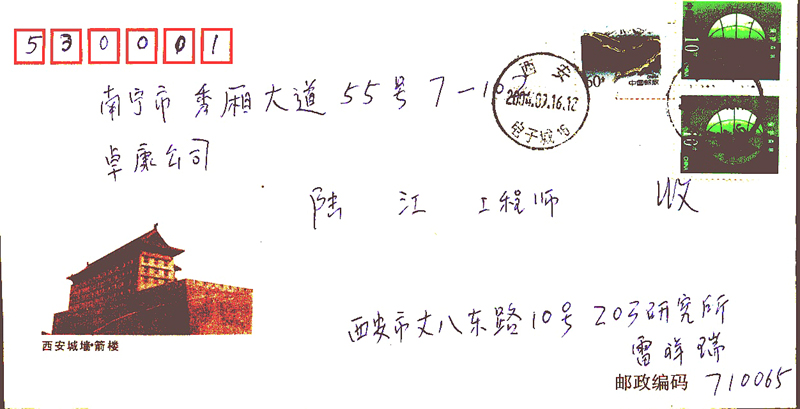 530001
南宁市 秀厢大道 55号 7-10
卓康公司
陆 江 工程师 收
西安
2004.07.16.12
电子城 16
60分
中国邮政
西安城墙·箭楼
西安市丈八东路10号 203研究所
雷祥瑞
邮政编码 710065